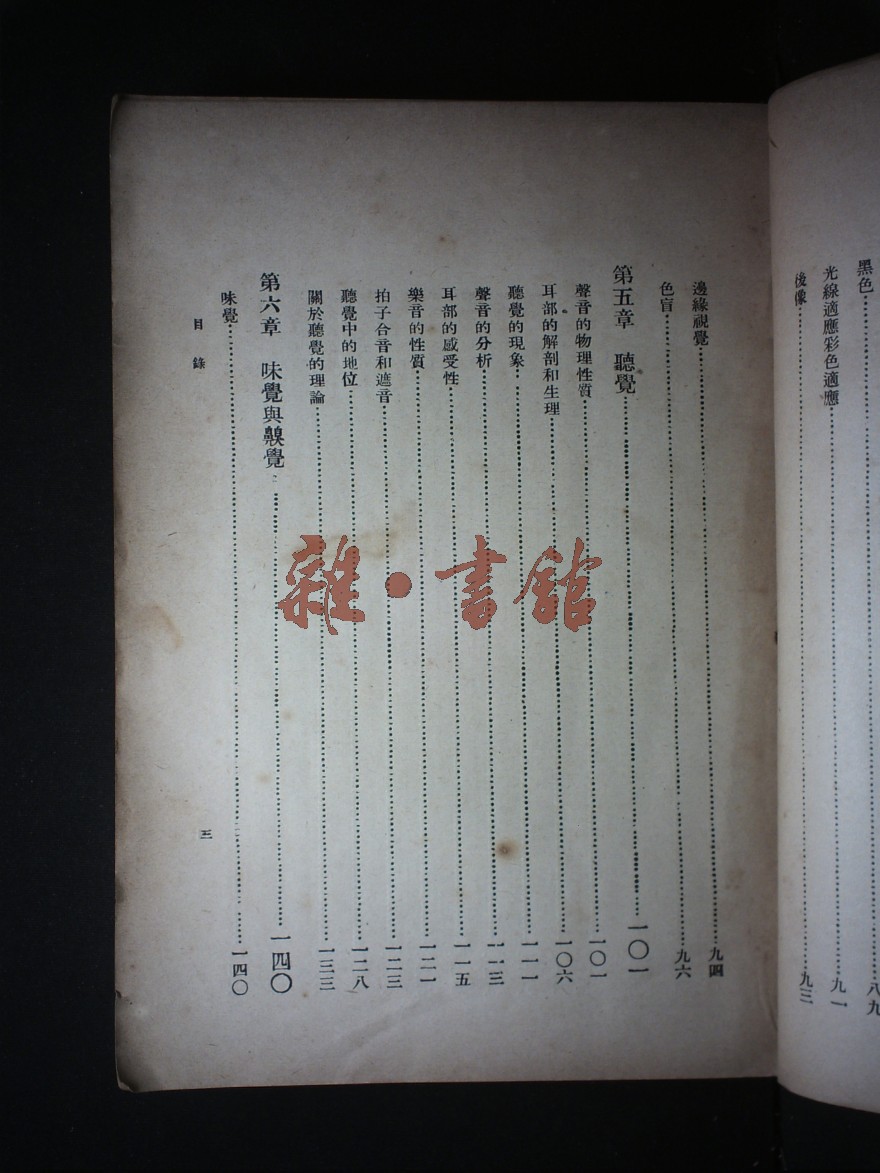 黑色……八九
光線適應彩色適應……九一
後像……九三
邊緣視覺……九四
色盲……九六
第五章　聽覺……一〇一
聲音的物理性質……一〇一
耳部的解剖和生理……一〇六
聽覺的現象……一一一
聲音的分析……一一三
耳部的感受性……一一五
樂音的性質……一二一
拍子合音和遮音……一二三
聽覺中的地位……一二八
關於聽覺的理論……一三三
第六章　味覺與嗅覺……一四〇
味覺……一四〇
目錄
三
雜·書館